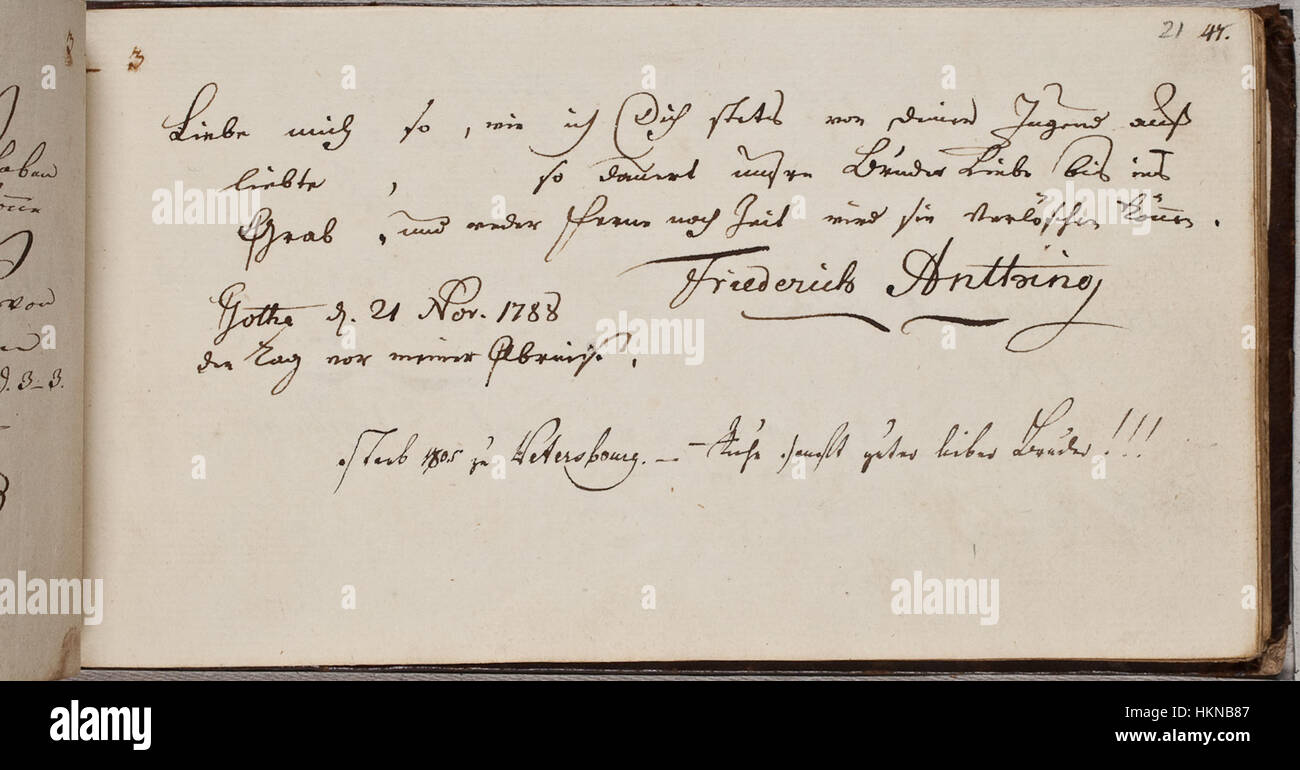 21 47.
3
Liebe mich so, wie ich Dich stets von deiner Jugend auf
liebte, so dauert unsre Bruder Liebe bis ins
Grab, und weder Ferne noch Zeit wird sie verlöschen können.
Friederich Anthing
Gotha d. 21 Nov. 1788
den Tag vor meiner Abreise.
starb 1805 zu Petersbourg. — Ruhe sanft guter lieber Bruder!!!
haben
von
d. 3_3.
alamy
alamy
Image ID: HKNB87
www.alamy.com